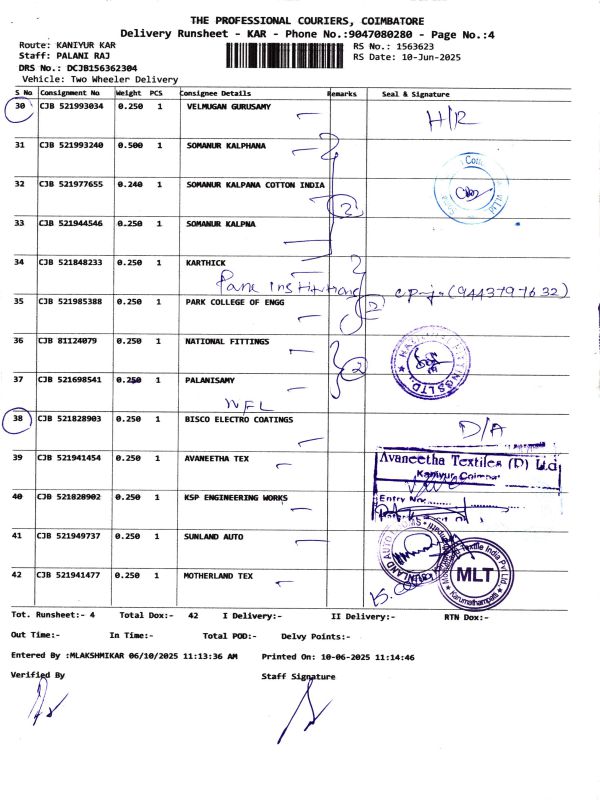 THE PROFESSIONAL COURIERS, COIMBATORE
Delivery Runsheet - KAR - Phone No.:9047080280 - Page No.:4
Route: KANIYUR KAR RS No.: 1563623
Staff: PALANI RAJ RS Date: 10-Jun-2025
DRS No.: DCJB156362304
Vehicle: Two Wheeler Delivery
S No Consignment No Weight PCS Consignee Details Remarks Seal & Signature
30 CJB 521993034 0.250 1 VELMUGAN GURUSAMY
H/R
31 CJB 521993240 0.500 1 SOMANUR KALPHANA
32 CJB 521977655 0.240 1 SOMANUR KALPANA COTTON INDIA
2
33 CJB 521944546 0.250 1 SOMANUR KALPNA
34 CJB 521848233 0.250 1 KARTHICK
Park Institutions (9443797632)
35 CJB 521985388 0.250 1 PARK COLLEGE OF ENGG 2
36 CJB 81124079 0.250 1 NATIONAL FITTINGS
2
37 CJB 521698541 0.250 1 PALANISAMY
NFL
38 CJB 521828903 0.250 1 BISCO ELECTRO COATINGS
D/A
39 CJB 521941454 0.250 1 AVANEETHA TEX
Avaneetha Textiles (P) Ltd
Kaniyur, Coimbat
40 CJB 521828902 0.250 1 KSP ENGINEERING WORKS
Entry No:
41 CJB 521949737 0.250 1 SUNLAND AUTO
SUNLAND AUTO
42 CJB 521941477 0.250 1 MOTHERLAND TEX
Textile India Pvt Ltd.
MLT
Karumathampatti
Tot. Runsheet:- 4 Total Dox:- 42 I Delivery:- II Delivery:- RTN Dox:-
Out Time:- In Time:- Total POD:- Delvy Points:-
Entered By :MLAKSHMIKAR 06/10/2025 11:13:36 AM Printed On: 10-06-2025 11:14:46
Verified By Staff Signature